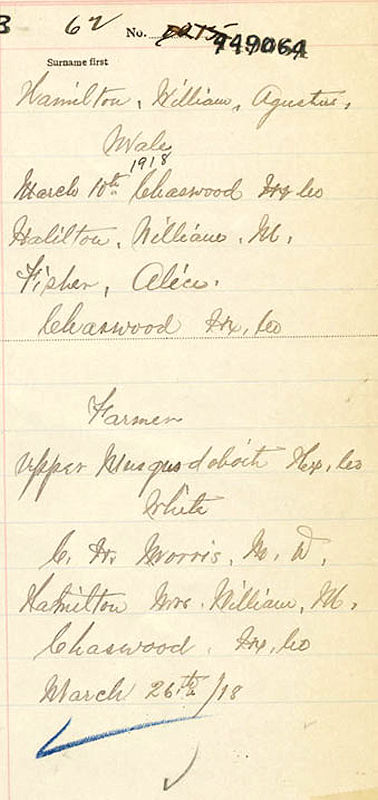 3 62 No. 449064
Surname first
Hamilton, William, Agustus,
Male
1918
March 10th Chaswood Hx Co
Halilton, William, M,
Fisher, Alice.
Chaswood Hx, Co
Farmer
Upper Musquodoboit Hx, Co
White
C. H. Morris, M. D,
Hamilton Mrs. William, M,
Chaswood, Hx, Co
March 26th/18